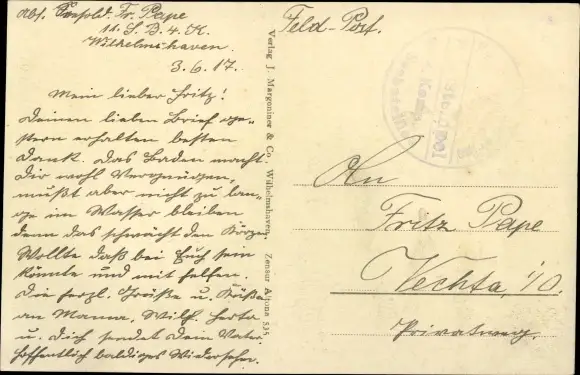 Abs. Seesold. Fr. Pape
11. S. B. 4. K.
Wilhelmshaven.
3.6.17.
Mein lieber Fritz!
Deinen lieben Brief ge-
stern erhalten besten
Dank. Das Baden macht
Dir wohl Vergnügen,
mußt aber nicht zu lan-
ge im Wasser bleiben
denn das schwächt den Körper
Wollte daß bei Euch sein
könnte und mit helfen.
Die herzl. Grüße u. Küße
an Mamma, Wilh. Herta
u. Dich sendet Dein Vater
hoffentlich baldiges Wiedersehn.
Verlag J. Margoniner & Co., Wilhelmshaven. Zensur Altona 535
Feld-Post.
Stempel
An
Fritz Pape
Vechta, i/O.
Privatweg.